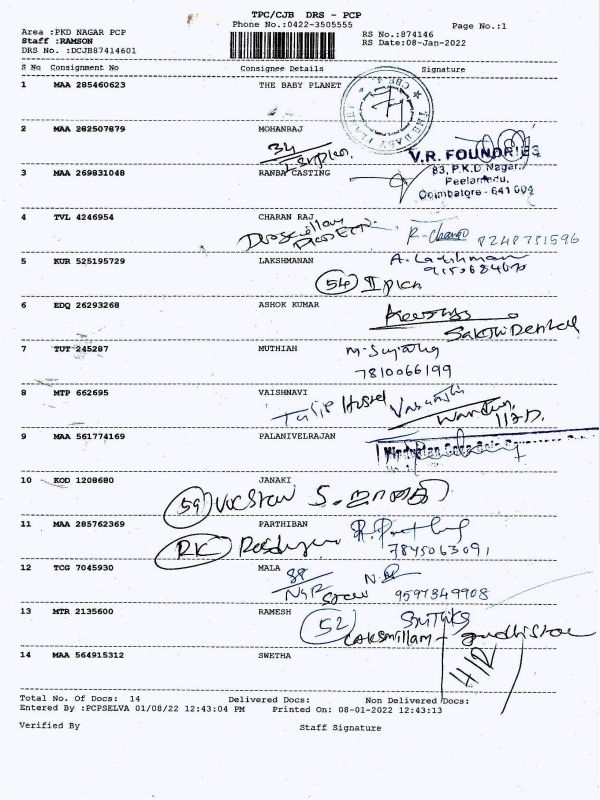 TPC/CJB DRS - PCP
Phone No.:0422-3505555
Page No.:1
Area :PKD NAGAR PCP
Staff :RAMSON
DRS No. :DCJB87414601
RS No.:874146
RS Date:08-Jan-2022
S No Consignment No Consignee Details Signature
1 MAA 285460623 THE BABY PLANET
THE BABY PLANET
2 MAA 282507879 MOHANRAJ
34
V.R. FOUNDRIES
83, P.K.D Nagar,
Peelamedu,
Coimbatore - 641 004
3 MAA 269831048 RANBA CASTING
4 TVL 4246954 CHARAN RAJ
R. Charan 8248781596
5 KUR 525195729 LAKSHMANAN
A. Lakshman
54
6 EDQ 26293268 ASHOK KUMAR
Sakthi Dental
7 TUT 245287 MUTHIAH
7810066199
8 MTP 662695 VAISHNAVI
Tulip Hostel
9 MAA 561774169 PALANIVELRAJAN
10 KOD 1208680 JANAKI
59 S. ஜானகி
11 MAA 285762369 PARTHIBAN
RK
7845063091
12 TCG 7045930 MALA
NGR
9597349908
13 MTR 2135600 RAMESH
52
14 MAA 564915312 SWETHA
4/2
Total No. Of Docs: 14 Delivered Docs: Non Delivered Docs:
Entered By :PCPSELVA 01/08/22 12:43:04 PM Printed On: 08-01-2022 12:43:13
Verified By Staff Signature